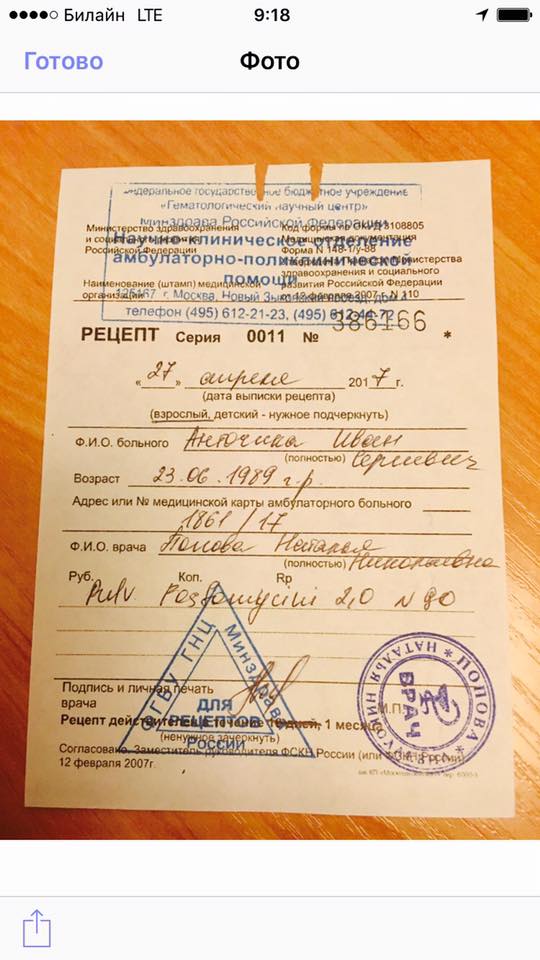 Билайн LTE 9:18
Готово Фото
Федеральное государственное бюджетное учреждение
«Гематологический научный центр»
Минздрава Российской Федерации
Научно-клиническое отделение
амбулаторно-поликлинической
помощи
125167 г. Москва, Новый Зыковский проезд, дом 4
телефон (495) 612-21-23, (495) 612-44-72
Министерство здравоохранения
и социального
Российской Федерации
Наименование (штамп) медицинской
организации
Код формы по ОКУД 3108805
Медицинская документация
Форма N 148-1/у-88
Министерства
здравоохранения и социального
развития Российской Федерации
от 12 февраля 2007 г. N 110
РЕЦЕПТ Серия 0011 № 386166 *
«27» апреля 2017 г.
(дата выписки рецепта)
(взрослый, детский - нужное подчеркнуть)
Ф.И.О. больного Иван
(полностью) Сергеевич
Возраст 23.06.1989 г.р.
Адрес или № медицинской карты амбулаторного больного
1861/17
Ф.И.О. врача Попова Наталья
(полностью) Николаевна
Руб. Коп. Rp
Pulv. 2,0 N 90
Подпись и личная печать
врача
М.П.
Рецепт действителен в течение 10 дней, 1 месяца
(ненужное зачеркнуть)
Согласовано. Заместитель руководителя ФСКН России
12 февраля 2007г.
ФГБУ ГНЦ Минздрава России
ДЛЯ
РЕЦЕПТОВ
ПОПОВА * НАТАЛЬЯ НИКОЛАЕВНА *
ВРАЧ